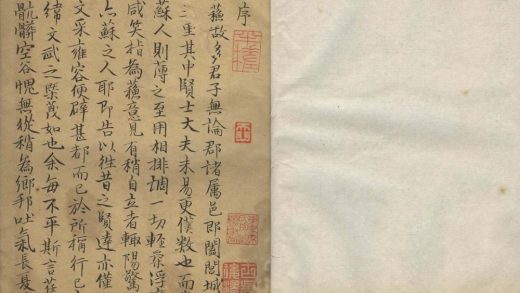 序
蘇故多君子無論郡諸属邑即閭閻城
三重其中賢士大夫未易更僕數也而
蘇人則薄之至用相排調一切輕薄浮
咸笑指為蘇意見有稍自立者輒陽驚
蘇之人耶即告以往昔之賢達亦僅
文采雍容便辟甚都而已於所稱行己
緯文武之槩蔑如也余每不平斯言
骯髒空谷愧無從稍為鄉邦吐氣長